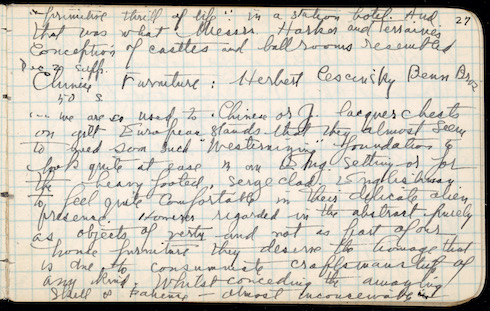 27
"primitive thrill of life" in a station hotel. And
that was what Messrs. Harker and Terraine's
Conception of castles and ballrooms resembled
Dec 20 Supp.
Chinese Furniture: Herbert Cescinsky Benn Bros
50 s.
... we are so used to Chinese or J. lacquer chests
on gilt European stands that they almost seem
to need som such "Westernising" foundation to
look quite at ease in an Eng. Setting or for
the heavy footed, serge clad Englishway
to feel quite comfortable in their delicate alien
presence. However regarded in the abstract purely
as objects of vertu and not as part of our
house furniture they deserve the homage that
is due to consummate craftsmanship of
any kind. Whilst conceding the amazing
skill & patience - almost inconceivable